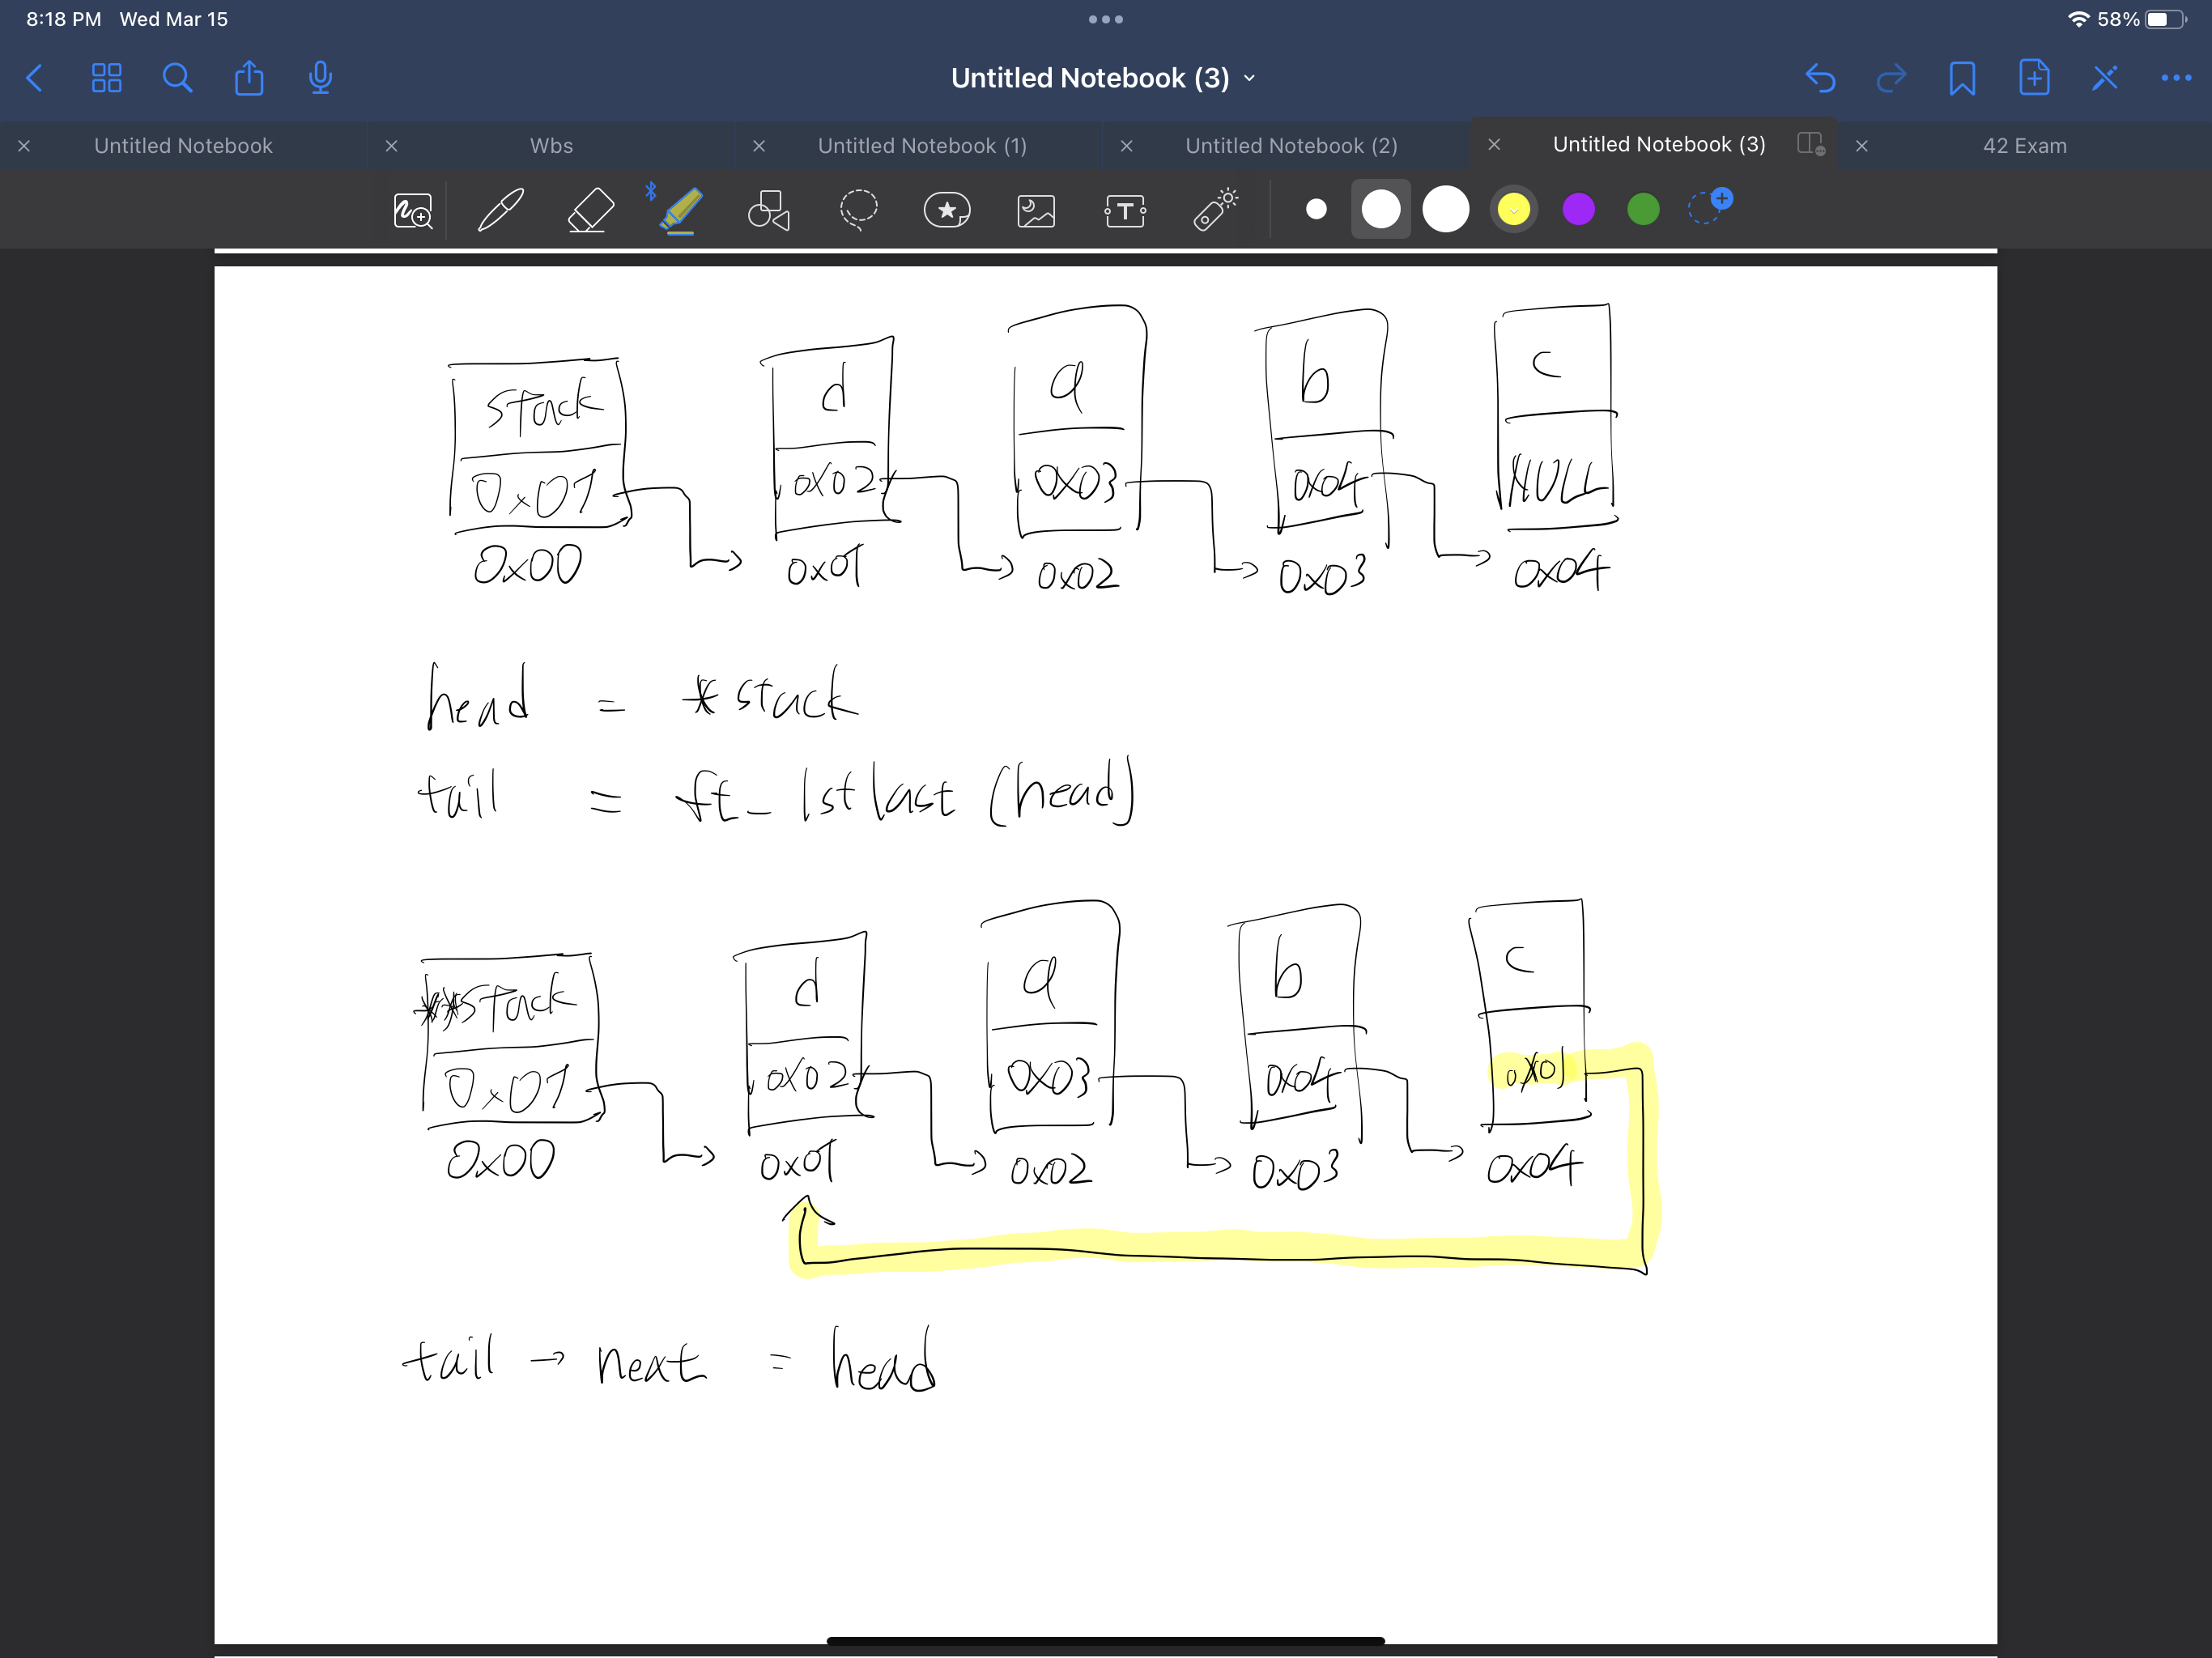 8:18 PM Wed Mar 15
58%
Untitled Notebook (3)
Untitled Notebook
Wbs
Untitled Notebook (1)
Untitled Notebook (2)
Untitled Notebook (3)
42 Exam
stack d a b c
0x01 0x02 0x03 0x04 NULL
0x00 0x01 0x02 0x03 0x04
head = *stack
tail = ft_lstlast (head)
**stack d a b c
0x01 0x02 0x03 0x04 0x01
0x00 0x01 0x02 0x03 0x04
tail → next = head